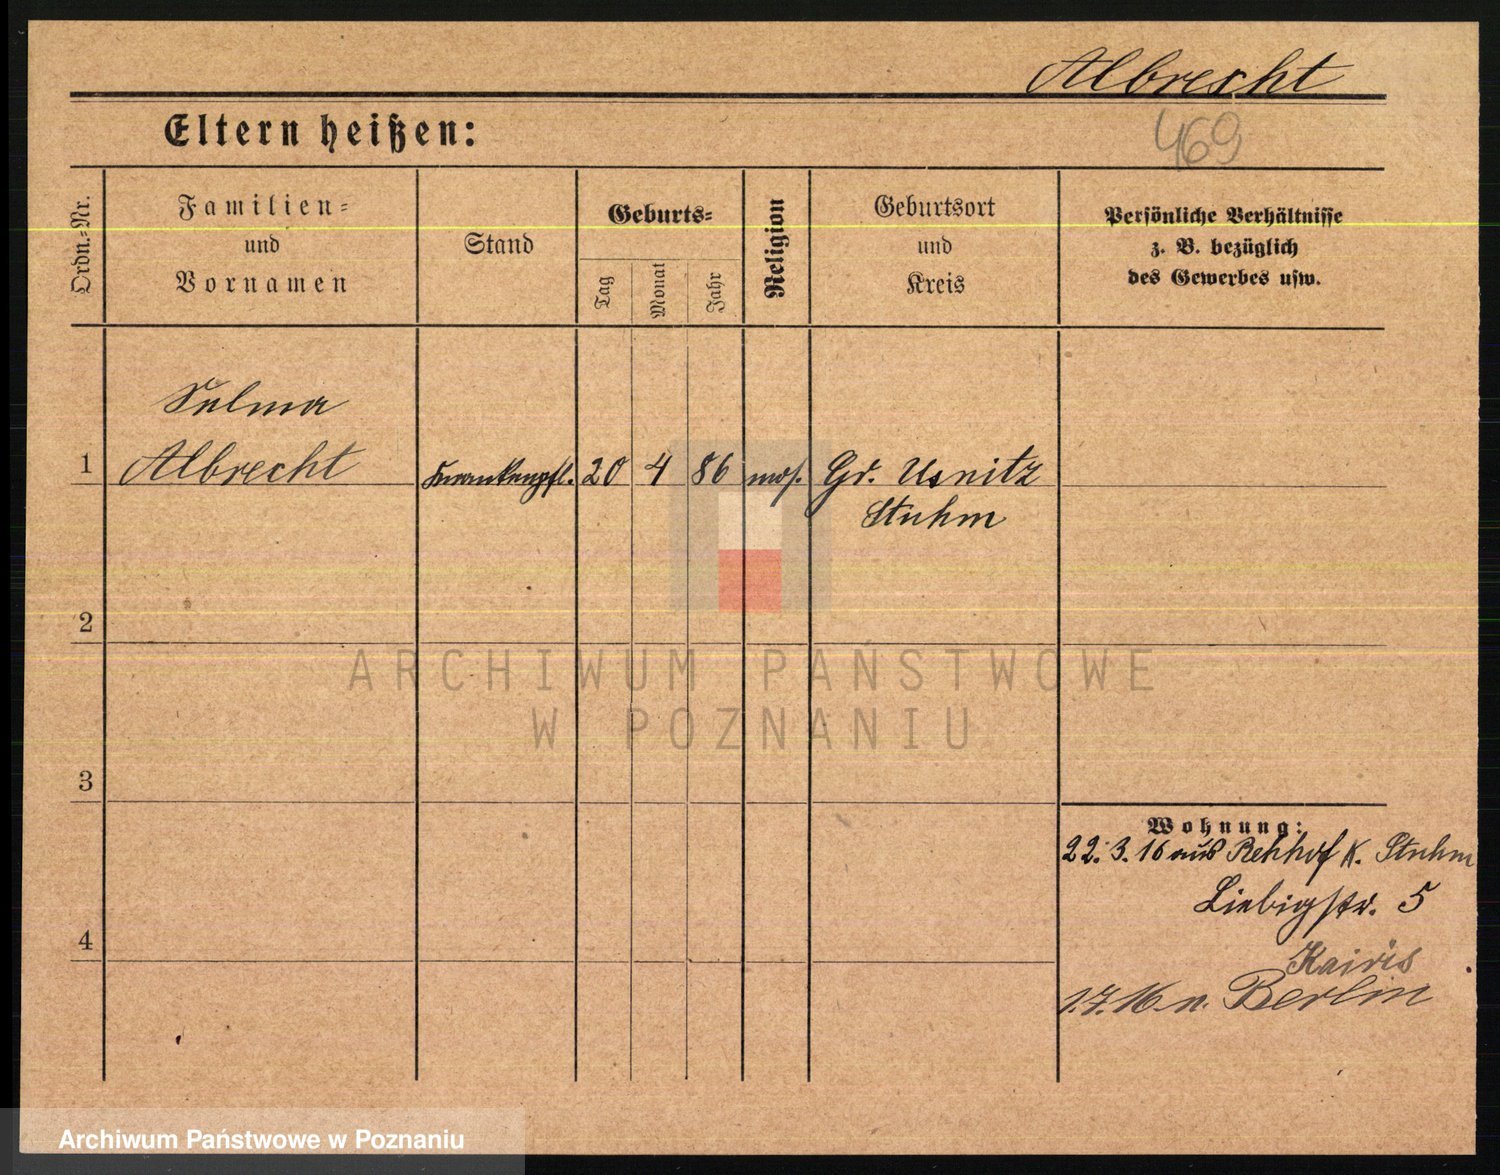 Albrecht
469
Eltern heißen:
Ordn.-Nr.
Familien-
und
Vornamen
Stand
Geburts-
Tag
Monat
Jahr
Religion
Geburtsort
und
Kreis
Persönliche Verhältnisse
z. B. bezüglich
des Gewerbes usw.
Selma
1 Albrecht Krankenpfl. 20 4 86 mos. Gr. Usnitz
Stuhm
2
ARCHIWUM PAŃSTWOWE
W POZNANIU
3
Wohnung:
22. 3. 16 aus Rehhof K. Stuhm
Liebigstr. 5
4
Kairis
1.7.16 n. Berlin
Archiwum Państwowe w Poznaniu